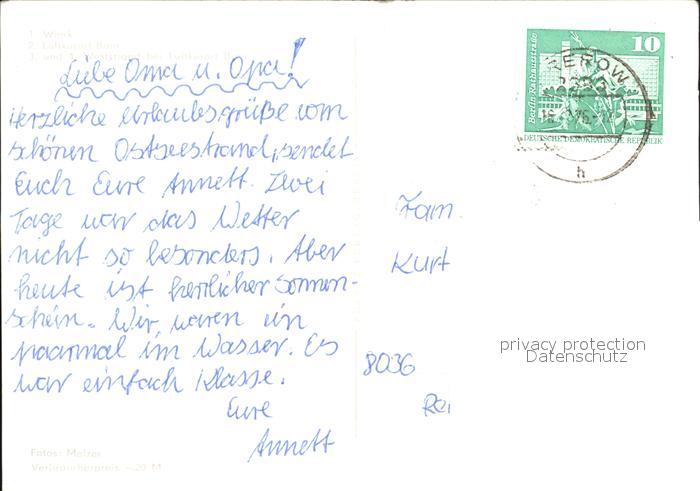 1. Wieck
2. Luftkurort Born
Liebe Oma u. Opa!
Herzliche Urlaubsgrüße vom
schönen Ostseestrand, sendet
Euch Eure Annett. Zwei
Tage war das Wetter
nicht so besonders. Aber
heute ist herrlicher Sonnen-
schein. Wir waren ein
paarmal im Wasser. Es
war einfach Klasse.
Eure
Annett
Fotos: Melzer
Verbraucherpreis -,20 M
10
Berlin, Rathausstraße
DEUTSCHE DEMOKRATISCHE REPUBLIK
EROW
h
Fam.
Kurt
privacy protection
Datenschutz
8036